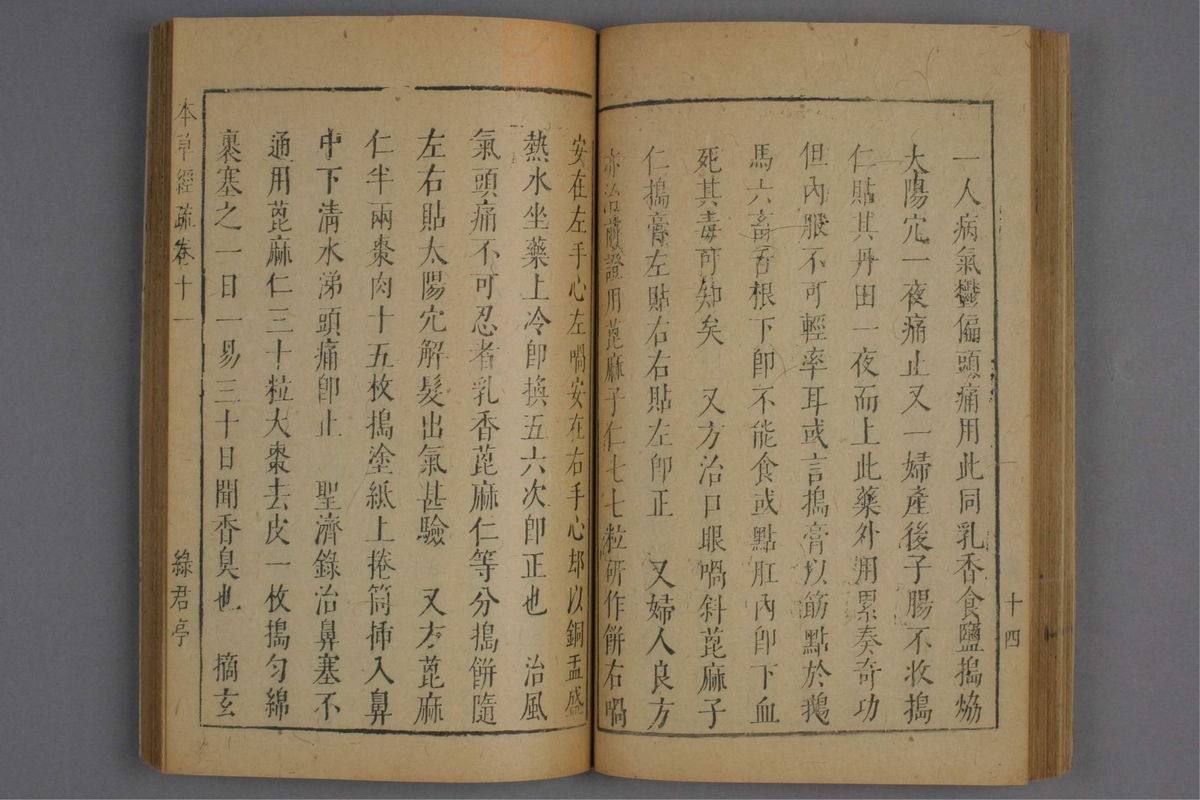 一人病氣鬱偏頭痛用此同乳香食鹽搗㷔
大陽穴一夜痛止又一婦產後子腸不收搗
仁貼其丹田一夜而上此藥外用累奏奇功
但內服不可輕率耳或言搗膏以筯點於鵝
馬六畜舌根下卽不能食或點肛內卽下血
死其毒可知矣　又方治口眼喎斜蓖麻子
仁搗膏左貼右右貼左卽正　又婦人良方
亦治此證用蓖麻子仁七七粒研作餅右喎
安在左手心左喎安在右手心却以銅盂盛
熱水坐藥上冷卽換五六次卽正也　治風
氣頭痛不可忍者乳香蓖麻仁等分搗餅隨
左右貼太陽穴解髮出氣甚驗　又方蓖麻
仁半兩棗肉十五枚搗塗紙上捲筒揷入鼻
中下淸水涕頭痛卽止　聖濟錄治鼻塞不
通用蓖麻仁三十粒大棗去皮一枚搗勻綿
裹塞之一日一易三十日聞香臭也　摘玄
十四
本草經疏卷十一
綠君亭